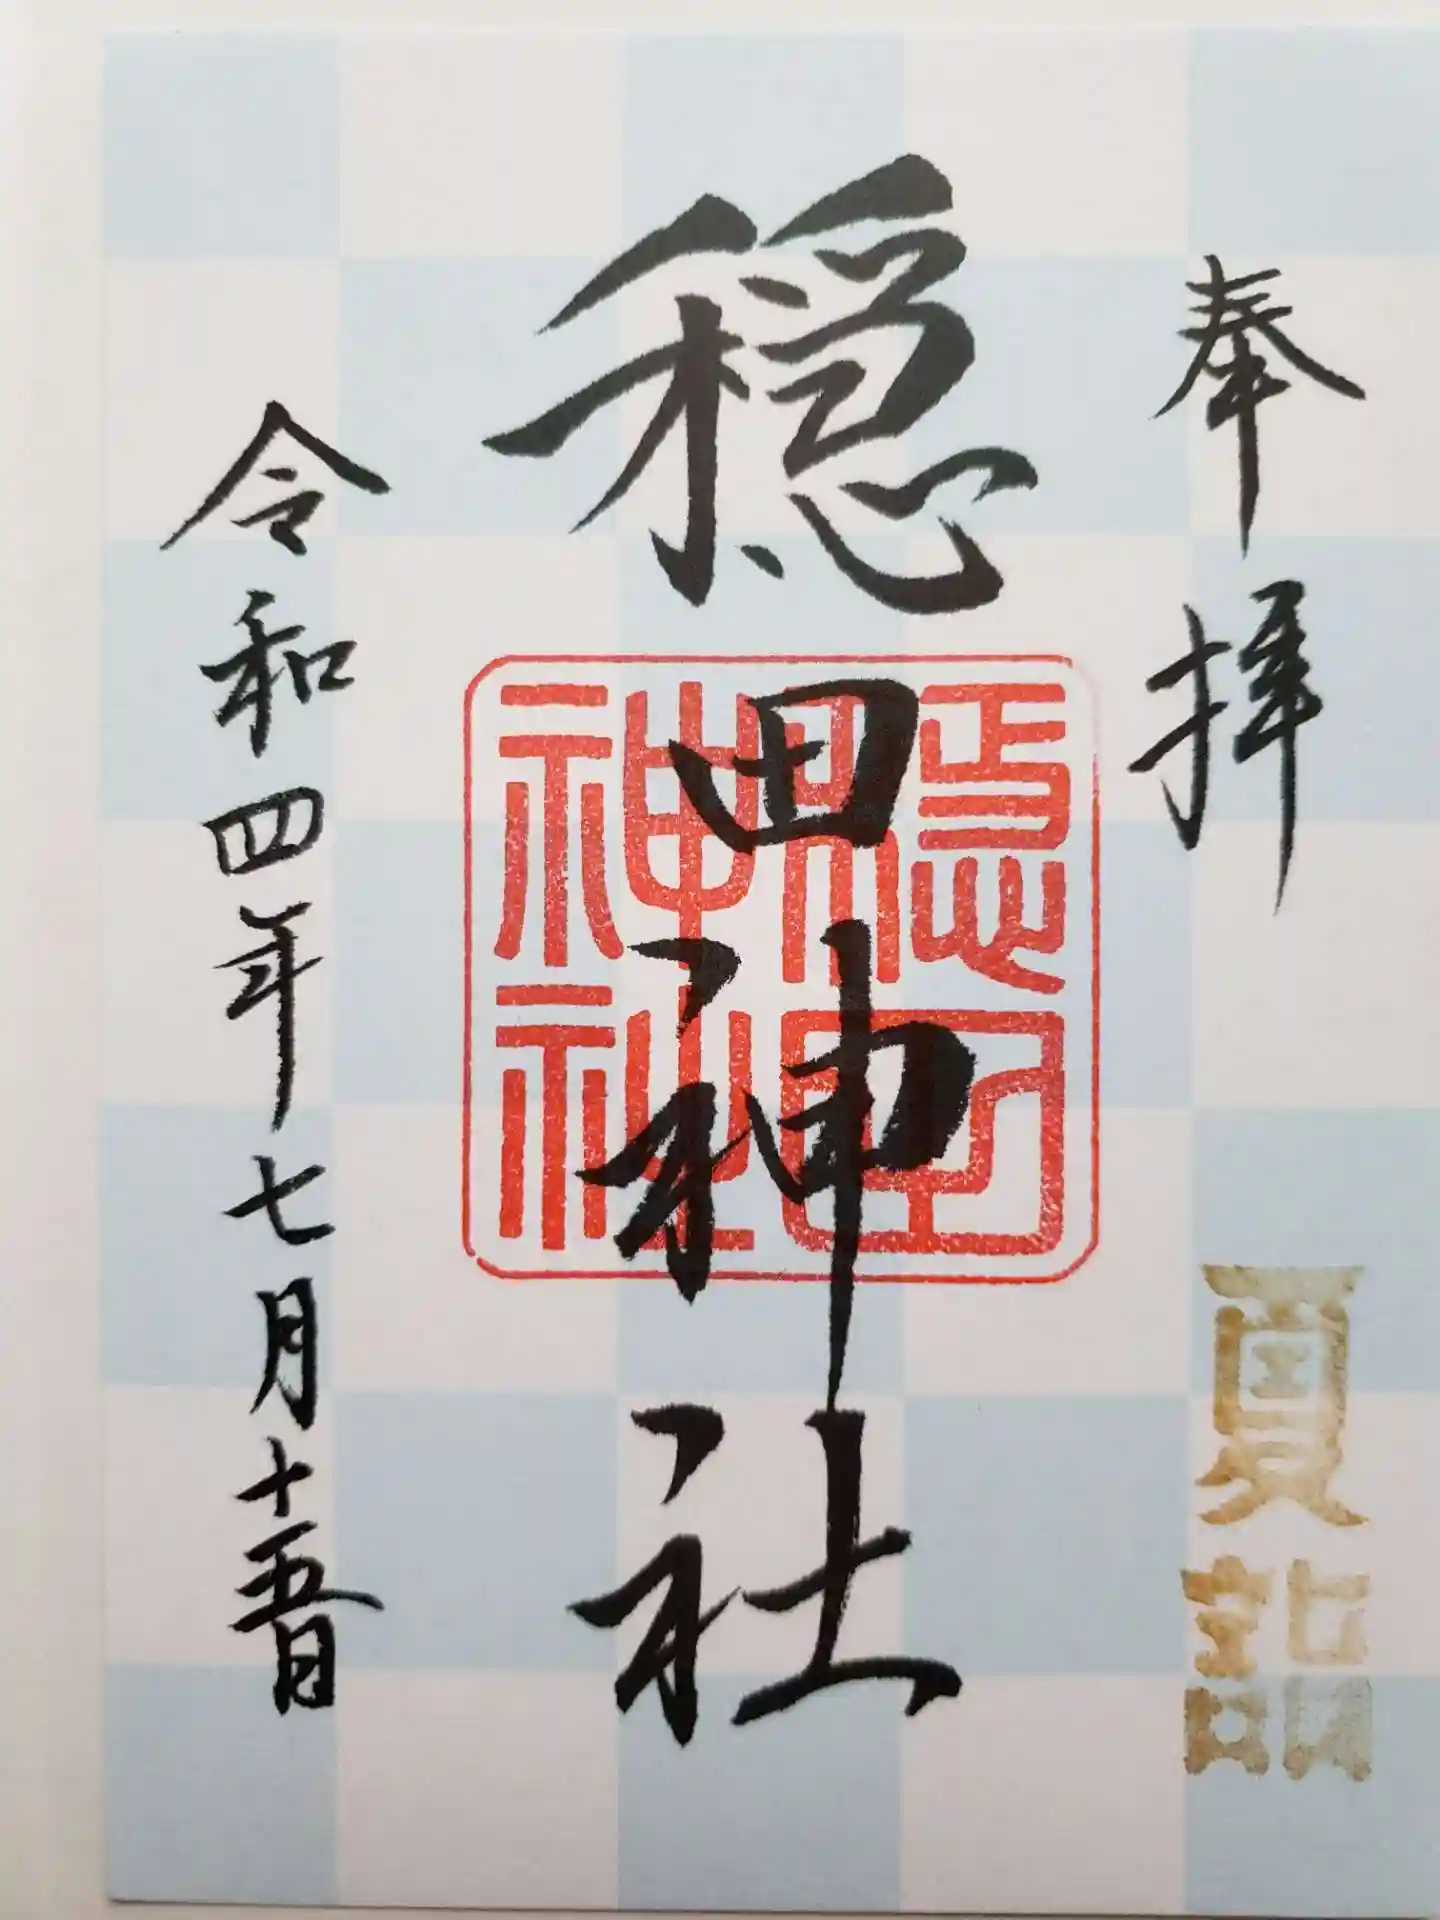 奉拝
夏詣
穏田神社
穏田
神社
令和四年七月十五日